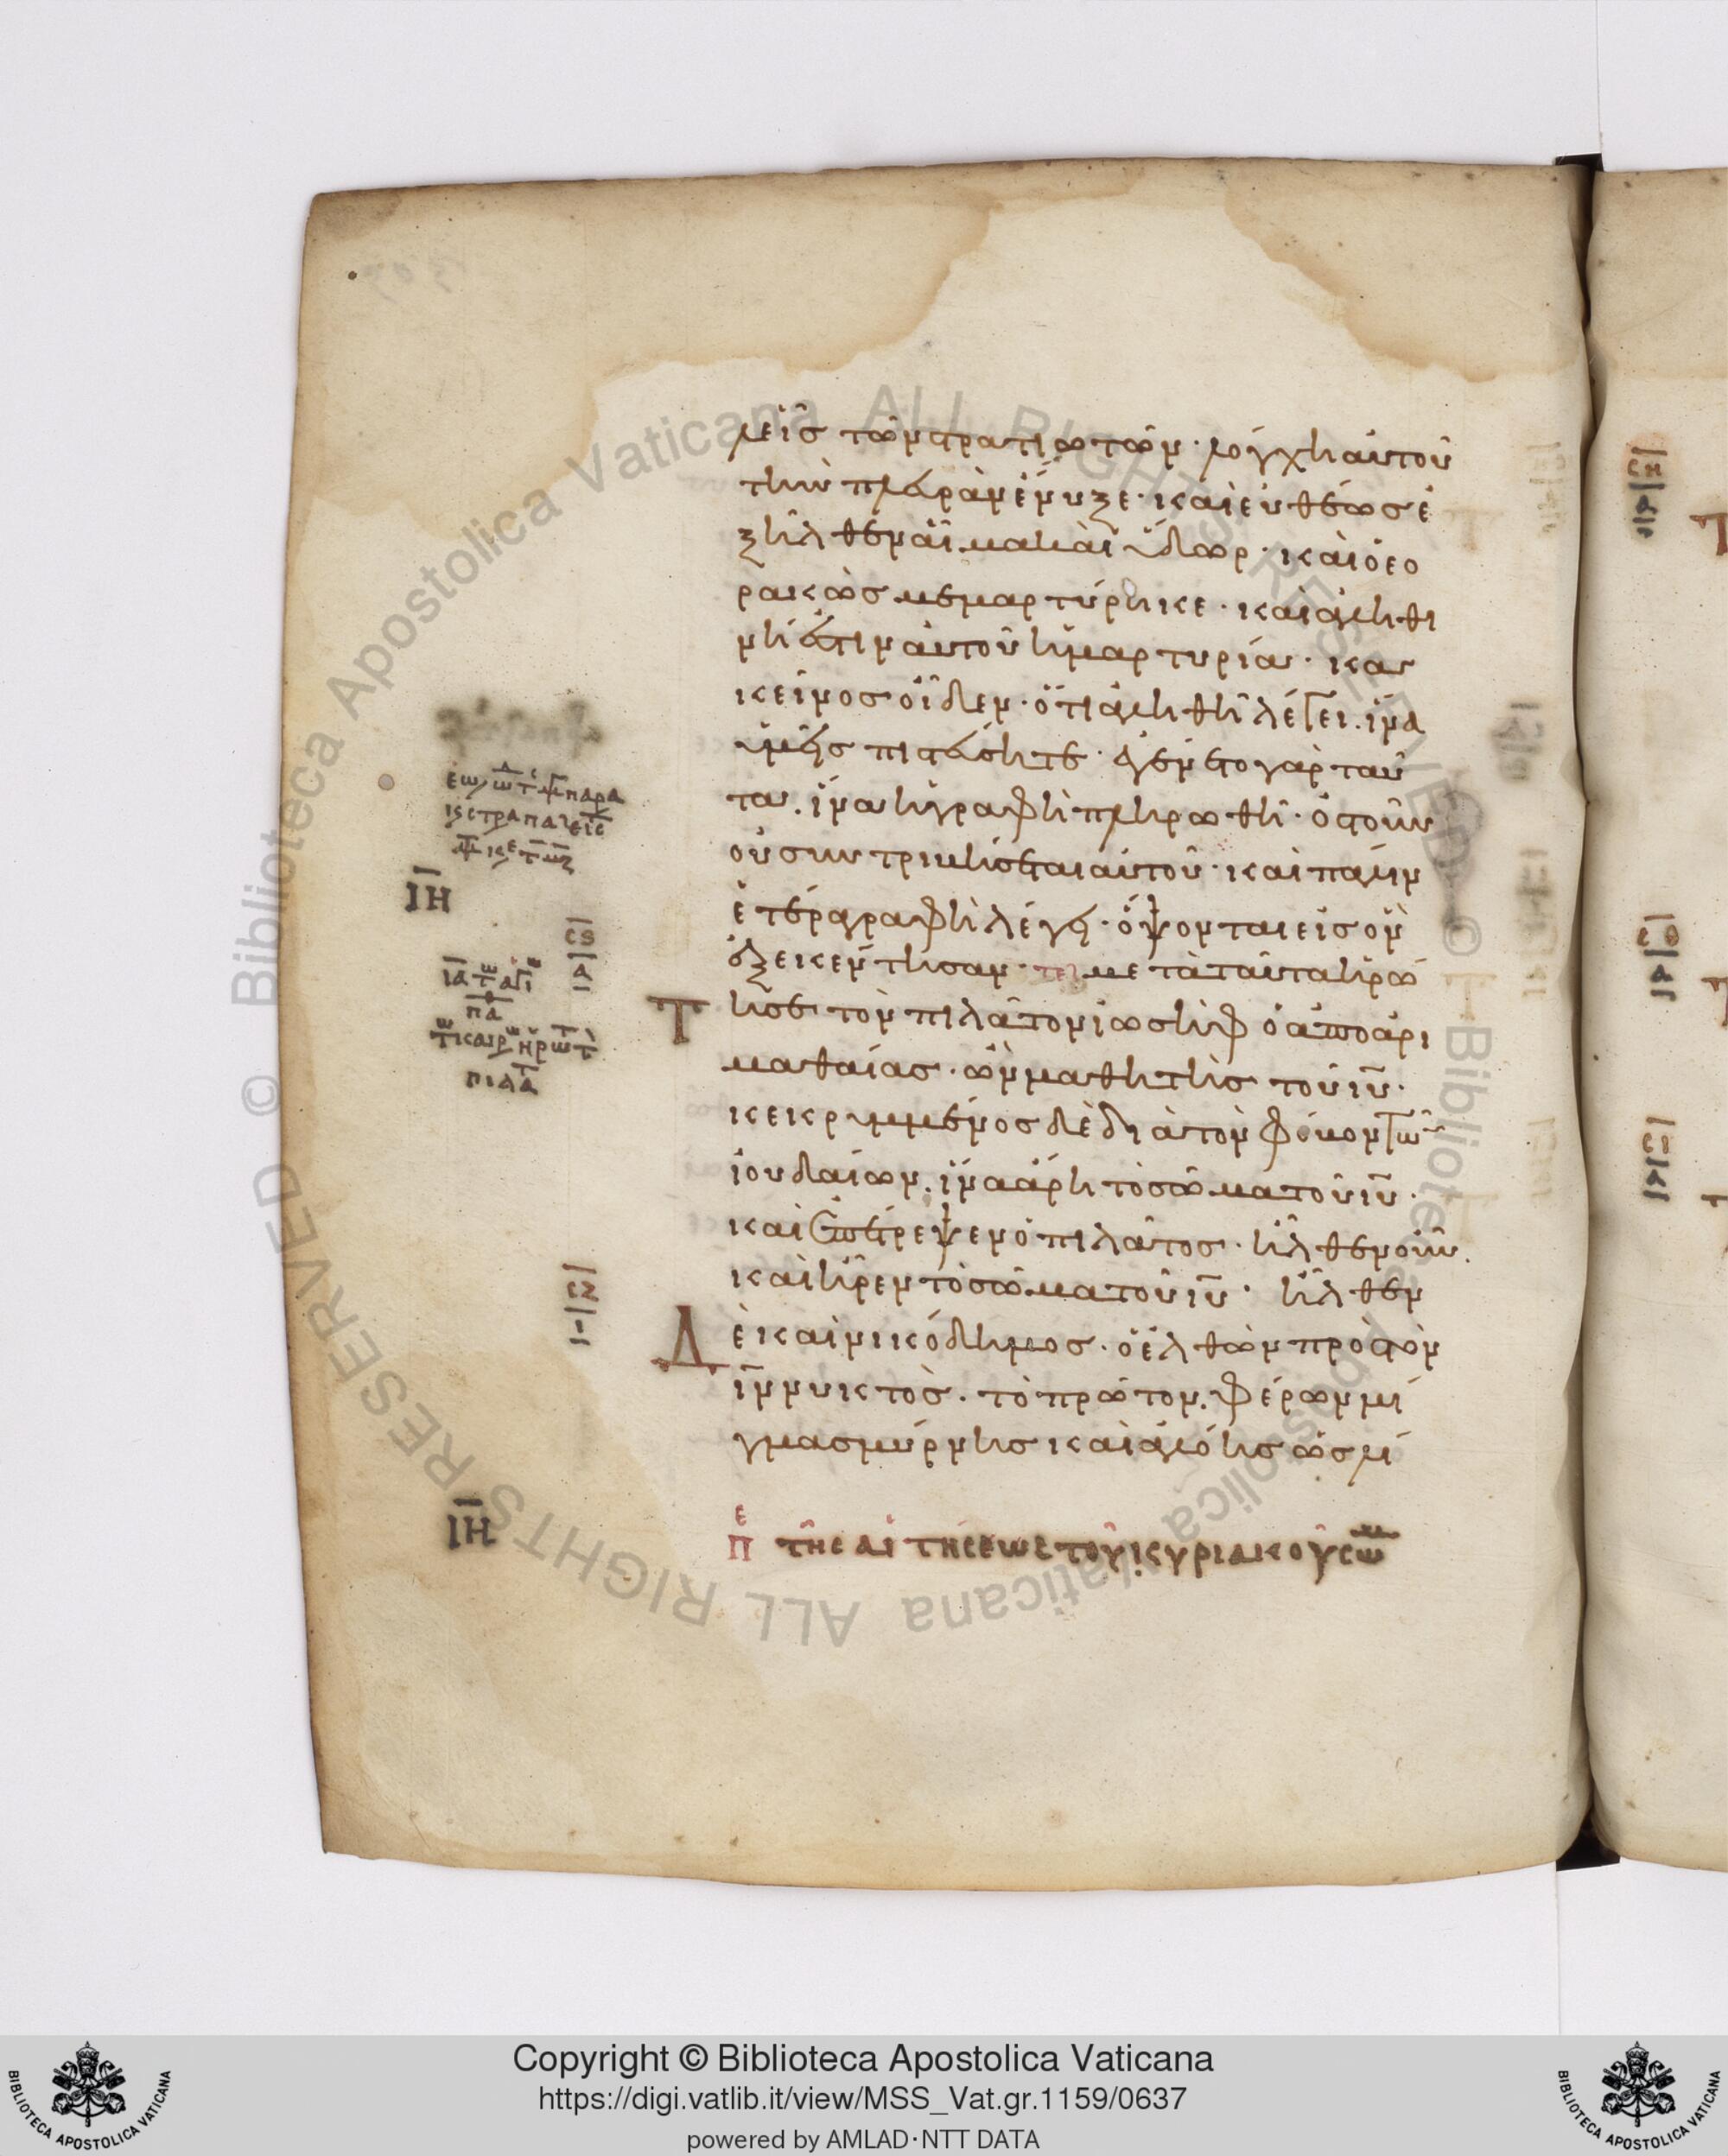 λεὶς τῶν στρατιωτῶν· λόγχη αὐτοῦ
τὴν πλευρὰν ἔνυξε· καὶ εὐθέως ἐ
ξῆλθεν αἷμα καὶ ὕδωρ· καὶ ὁ ἑο
ρακὼς μεμαρτύρηκε· καὶ ἀληθι
νή ἐστιν αὐτοῦ ἡ μαρτυρία· κα
κεῖνος οἶδεν· ὅτι ἀληθῆ λέγει. ἵνα
ὑμεῖς πιστεύσητε· ἐγένετο γὰρ ταῦ
τα. ἵνα ἡ γραφὴ πληρωθῆ· ὀστοῦν
οὐ συντριβήσεται αὐτοῦ· καὶ πάλιν
ἑτέρα γραφὴ λέγει· ὄψονται εἰς ὃν
ἐξεκέντησαν· μετὰ ταῦτα ἠρώ
Τ ησε τὸν πιλᾶτον ἰωσὴφ ὁ ἀπὸ ἀρι
μαθαίας· ὢν μαθητὴς τοῦ ιῦ·
κεκρυμμένος δὲ διὰ τὸν φόβον τῶν
ἰουδαίων. ἵνα ἄρη τὸ σῶμα τοῦ ιῦ·
καὶ ἐπέτρεψεν ὁ πιλᾶτος· ἦλθεν οὖν.
καὶ ἦρεν τὸ σῶμα τοῦ ιῦ· ἦλθεν
Δ ὲ καὶ νικόδημος· ὁ ἐλθὼν πρὸς τὸν
ιν νυκτὸς. τὸ πρῶτον. φέρων μί
γμα σμύρνης καὶ ἀλόης ὡς λί
ΙΗ
ϹϚ
Α
ΙΗ
ϹΖ
Α
Copyright © Biblioteca Apostolica Vaticana
https://digi.vatlib.it/view/MSS_Vat.gr.1159/0637
powered by AMLAD·NTT DATA
BIBLIOTECA APOSTOLICA VATICANA
BIBLIOTECA APOSTOLICA VATICANA
© Biblioteca Apostolica Vaticana ALL RIGHTS RESERVED
© Biblioteca Apostolica Vaticana ALL RIGHTS RESERVED